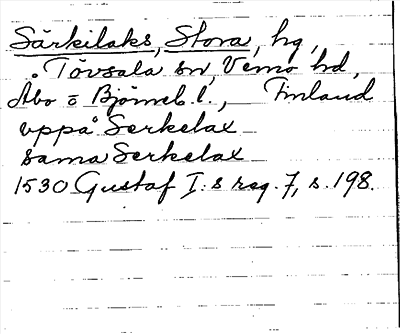 Särkilaks, Stora, hg,
Tövsala sn, Vemo hd,
Åbo o Björneb. l., Finland
uppå Serkelax
sama Serkelax
1530 Gustaf I:s reg. 7, s. 198.